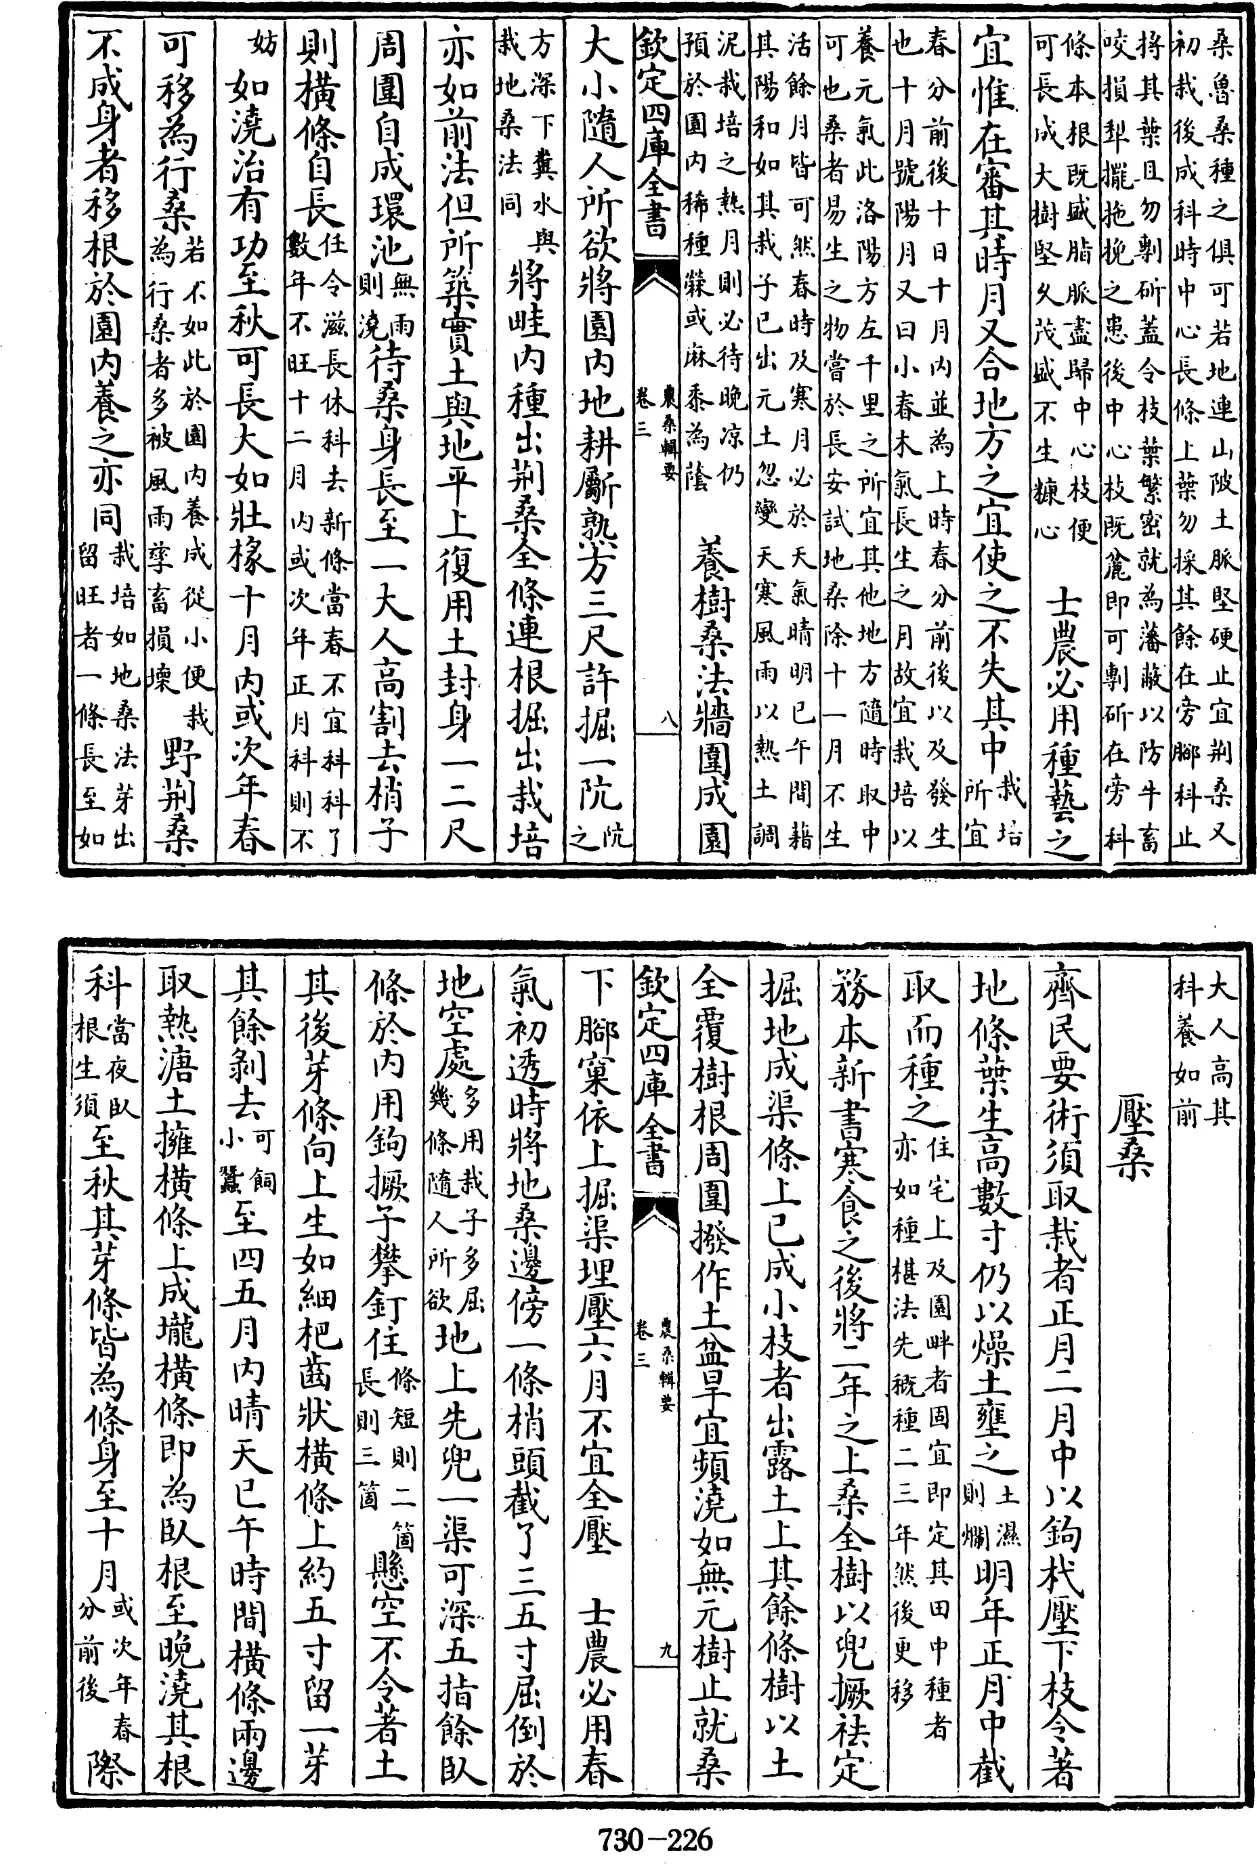 桑魯桑種之俱可若地連山陂土脈堅硬止宜荆桑又
初栽後成科時中心長條上葉勿採其餘在旁腳科止
將其葉且勿剸斫蓋令枝葉繁密就為藩蔽以防牛畜
咬損犁擺拖挽之患後中心枝既麄即可剸斫在旁科
條本根既盛脂脈盡歸中心枝便
可長成大樹堅久茂盛不生糠心
士農必用種藝之
宜惟在審其時月又合地方之宜使之不失其中栽培所宜
春分前後十日十月内並為上時春分前後以及發生
也十月號陽月又曰小春木氣長生之月故宜栽培以
養元氣此洛陽方左千里之所宜其他地方隨時取中
可也桑者易生之物當於長安試地桑除十一月不生
活餘月皆可然春時及寒月必於天氣晴明巳午間藉
其陽和如其栽子已出元土忽變天寒風雨以熱土調
泥栽培之熱月則必待晚凉仍
預於園内稀種或麻黍為蔭
養樹桑法牆圍成園
欽定四庫全書
農桑輯要
卷三
八
大小隨人所欲將園内地耕斸熟方三尺許掘一阬阬之
方深下糞水與栽地桑法同將畦内種出荆桑全條連根掘出栽培
亦如前法但所築實土與地平上復用土封身一二尺
周圍自成環池無雨則澆待桑身長至一大人高割去梢子
則橫條自長任令滋長休科去新條當春不宜科科了數年不旺十二月内或次年正月科則不
妨如澆治有功至秋可長大如壯椽十月内或次年春
可移為行桑若不如此於園内養成從小便栽為行桑者多被風雨孳畜損壞野荆桑
不成身者移根於園内養之亦同栽培如地桑法芽出留旺者一條長至如
大人高其科養如前
壓桑
齊民要術須取栽者正月二月中以鉤杙壓下枝令著
地條葉生高數寸仍以燥土壅之土濕則爛明年正月中截
取而種之住宅上及園畔者固宜即定其田中種者亦如種椹法先穊種二三年然後更移
務本新書寒食之後將二年之上桑全樹以兜撅祛定
掘地成渠條上已成小枝者出露土上其餘條樹以土
全覆樹根周圍撥作土盆旱宜頻澆如無元樹止就桑
欽定四庫全書
農桑輯要
卷三
九
下腳窠依上掘渠埋壓六月不宜全壓　士農必用春
氣初透時將地桑邊傍一條梢頭截了三五寸屈倒於
地空處多用栽子多屈幾條隨人所欲地上先兜一渠可深五指餘臥
條於内用鉤撅子攀釘住條短則二箇長則三箇懸空不令著土
其後芽條向上生如細杷齒狀橫條上約五寸留一芽
其餘剝去可飼小蠶至四五月内晴天巳午時間橫條兩邊
取熱溏土擁橫條上成壠橫條即為臥根至晚澆其根
科當夜臥根生須至秋其芽條皆為條身至十月或次年春分前後際
730-226